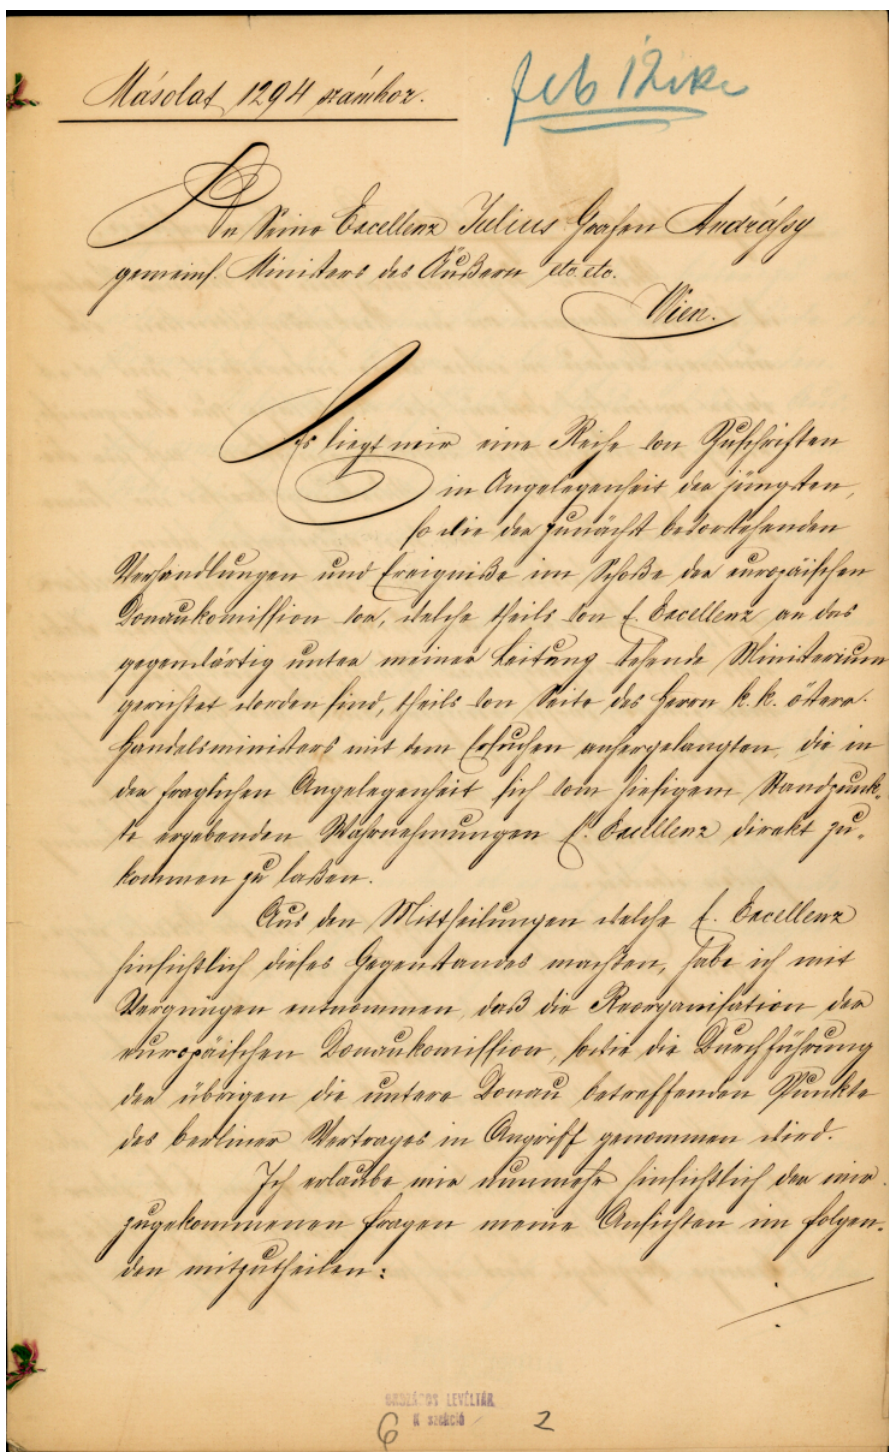 Másolat 1294 számhoz.
feb 12ike
An Seine Excellenz Julius Grafen Andráßy
gemeins. Ministers des Äußern etc. etc.
Wien.
Es liegt mir eine Reihe von Zuschriften
in Angelegenheit der jüngsten,
so wie der zunächst bevorstehenden
Verhandlungen und Ereigniße im Schoße der europäischen
Donaukomission vor, welche theils von E. Excellenz an das
gegenwärtig unter meiner Leitung stehende Ministerium
gerichtet worden sind, theils von Seite des Herrn k. k. österr.
Handelsministers mit dem Ersuchen anhergelangten, die in
der fraglichen Angelegenheit sich vom hiesigem Standpunk-
te ergebenden Wahrnehmungen E. Excellenz direkt zu-
kommen zu laßen.
Aus den Mittheilungen welche E. Excellenz
hinsichtlich dieses Gegenstandes machten, habe ich mit
Vergnügen entnommen, daß die Reorganisation der
europäischen Donaukomission, sowie die Durchführung
der übrigen die untere Donau betreffenden Punkte
des berliner Vertrages in Angriff genommen wird.
Ich erlaube mir nunmehr hinsichtlich der mir
zugekommenen Fragen meine Ansichten im folgen-
den mitzutheilen:
ORSZÁGOS LEVÉLTÁR
K szekció
6 2